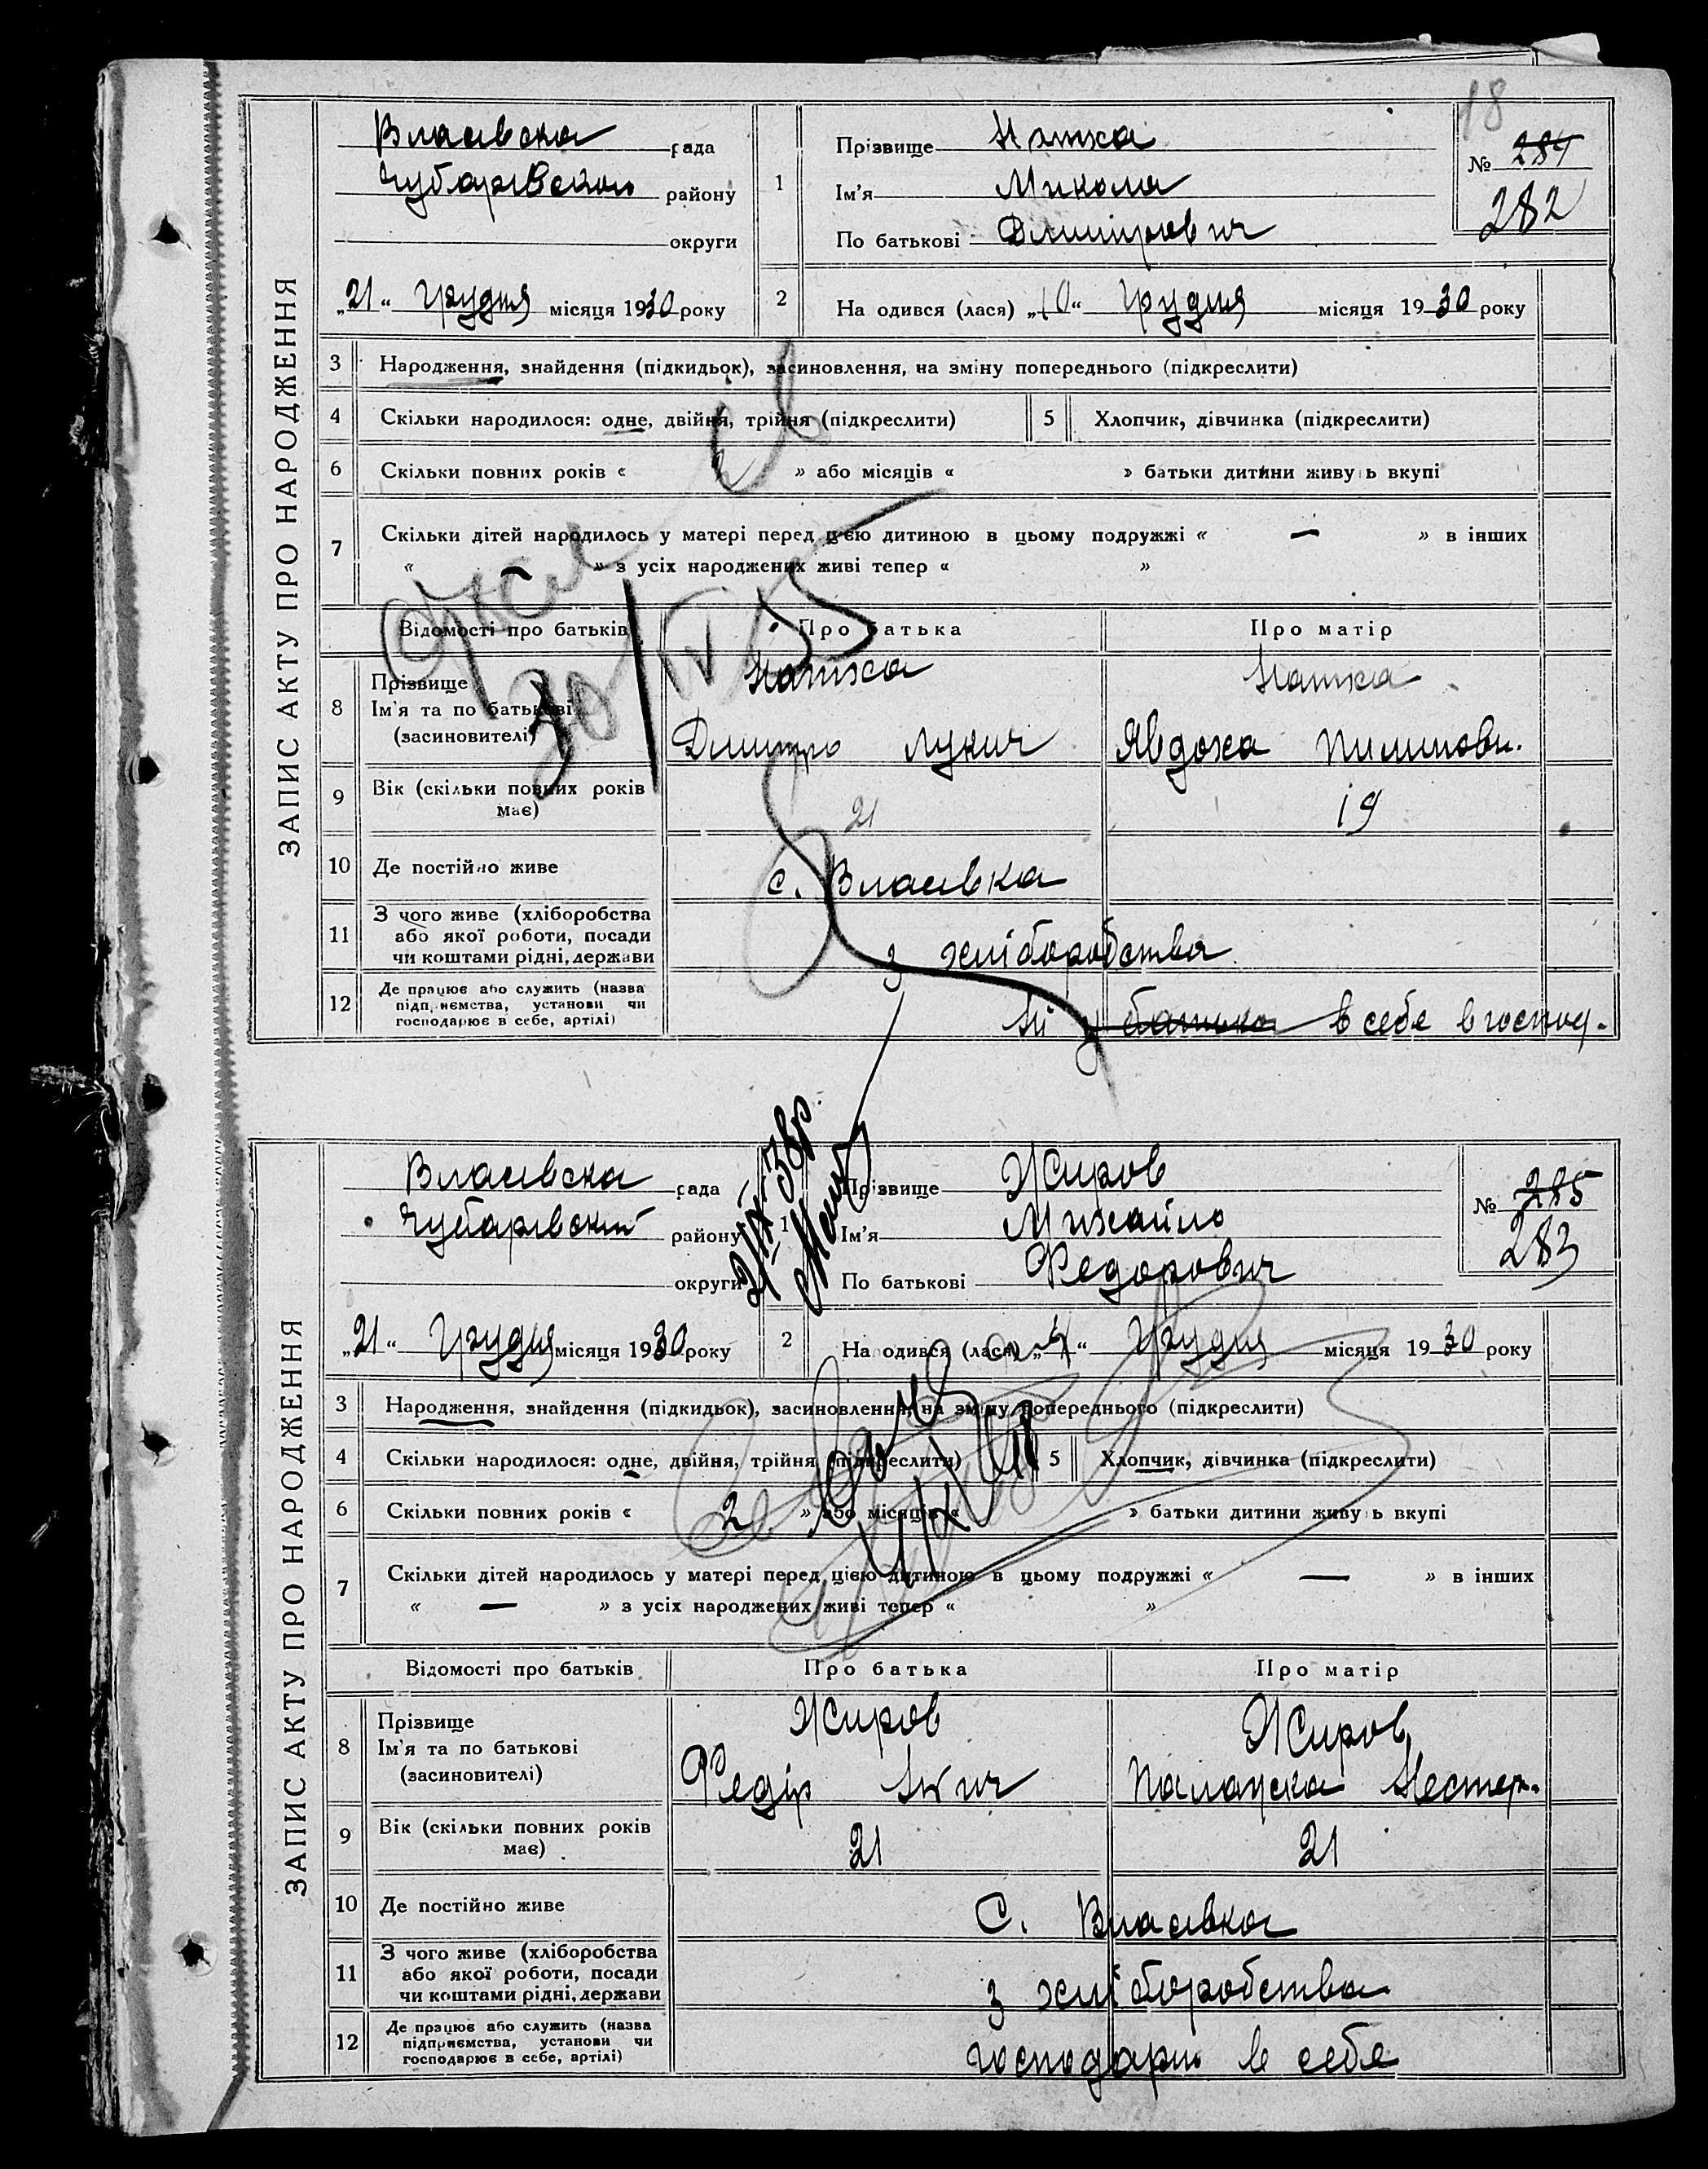 18
ЗАПИС АКТУ ПРО НАРОДЖЕННЯ
Власівска рада
Чубарівском району
округи
1
Прізвище
Ім'я Микола
По батькові Дмитрович
№ 284
282
„21“ Грудня місяця 1930 року
2 На одився (лася) „10“ Грудня місяця 1930 року
3 Народження, знайдення (підкидьок), засиновлення, на зміну попереднього (підкреслити)
4 Скільки народилося: одне, двійня, трійня (підкреслити)
5 Хлопчик, дівчинка (підкреслити)
6 Скільки повних років « » або місяців « » батьки дитини живу ь вкупі
7 Скільки дітей народилось у матері перед цією дитиною в цьому подружжі « — » в інших
« — » з усіх народжених живі тепер « »
30/IV 55
Відомості про батьків Про батька Про матір
8 Прізвище
Ім'я та по батькові
(засиновителі)
Дмитро Лукич Явдоха Пилипови.
9 Вік (скільки повних років має) 21 19
10 Де постійно живе с. Власівка
11 З чого живе (хліборобства
або якої роботи, посади
чи коштами рідні, держави
з хліборобства
12 Де працює або служить (назва
підприємства, установи чи
господарює в себе, артілі)
у батька в себе в господ.
ЗАПИС АКТУ ПРО НАРОДЖЕННЯ
Власівска рада
Чубарівский району
округи
1
Прізвище Жиров
Ім'я Михайло
По батькові Федорович
№ 285
283
„21“ Грудня місяця 1930 року
2 На одився (лася) „4“ Грудня місяця 1930 року
3 Народження, знайдення (підкидьок), засиновлення, на зміну попереднього (підкреслити)
4 Скільки народилося: одне, двійня, трійня (підкреслити)
5 Хлопчик, дівчинка (підкреслити)
6 Скільки повних років « 2 » або місяців « » батьки дитини живу ь вкупі
7 Скільки дітей народилось у матері перед цією дитиною в цьому подружжі « — » в інших
« — » з усіх народжених живі тепер « »
Відомості про батьків Про батька Про матір
8 Прізвище
Ім'я та по батькові
(засиновителі)
Жиров Жиров
Федір Палажка Нестер.
9 Вік (скільки повних років має) 21 21
10 Де постійно живе С. Власівка
11 З чого живе (хліборобства
або якої роботи, посади
чи коштами рідні, держави
з хліборобства
12 Де працює або служить (назва
підприємства, установи чи
господарює в себе, артілі)
господарю в себе